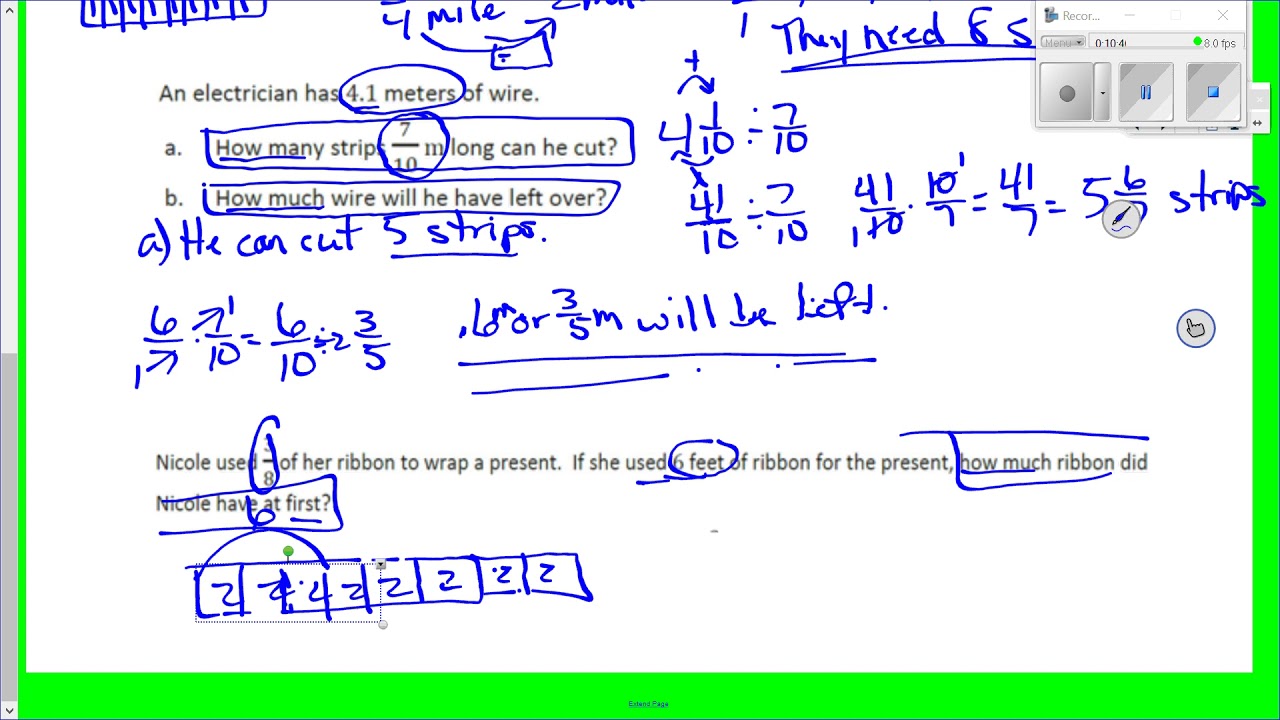 4 mile
They need 8 s
Recor...
Menu
0:10:4
8.0 fps
An electrician has 4.1 meters of wire.
a. How many strips 7/10 m long can he cut?
b. How much wire will he have left over?
4 1/10 ÷ 7/10
41/10 ÷ 7/10 41/10 · 10/7 = 41/7 = 5 6/7 strips
a) He can cut 5 strips.
6/7 · 7/10 = 6/10 ÷2 3/5 .6m or 3/5 m will be left.
Nicole used 3/8 of her ribbon to wrap a present. If she used 6 feet of ribbon for the present, how much ribbon did
Nicole have at first?
6
2 2 2 2 2 2
Extend Page